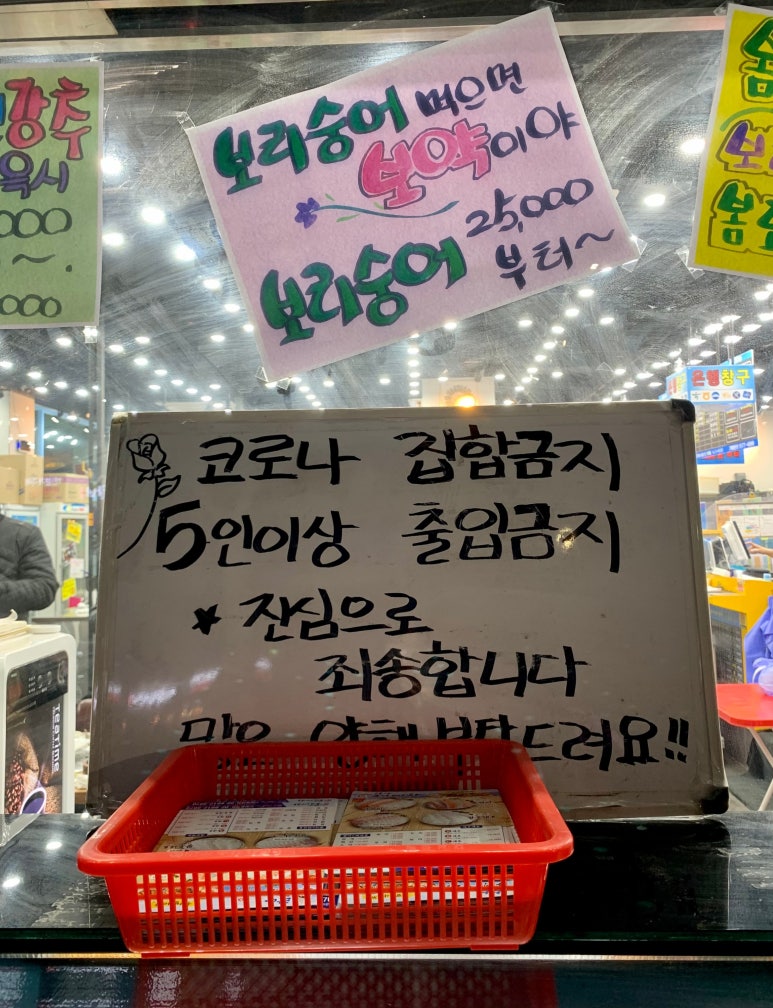 강추
000
~.
000
보리숭어 먹으면
보약이야
보리숭어 25,000
부터~
봄
은행창구
코로나 집합금지
5인이상 출입금지
★ 잔심으로
죄송합니다
많은 양해 부탁드려요!!
Teatime